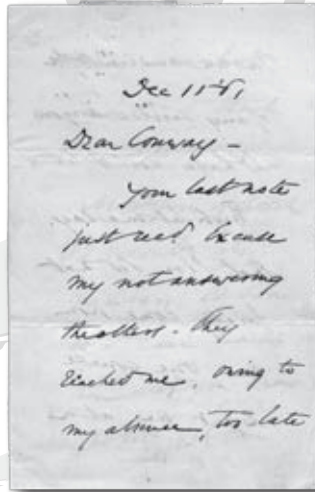 Dec 11 '61
Dear Conway –
Your last note
just rec'd. Excuse
my not answering
the others. They
reached me, owing to
my absence, too late